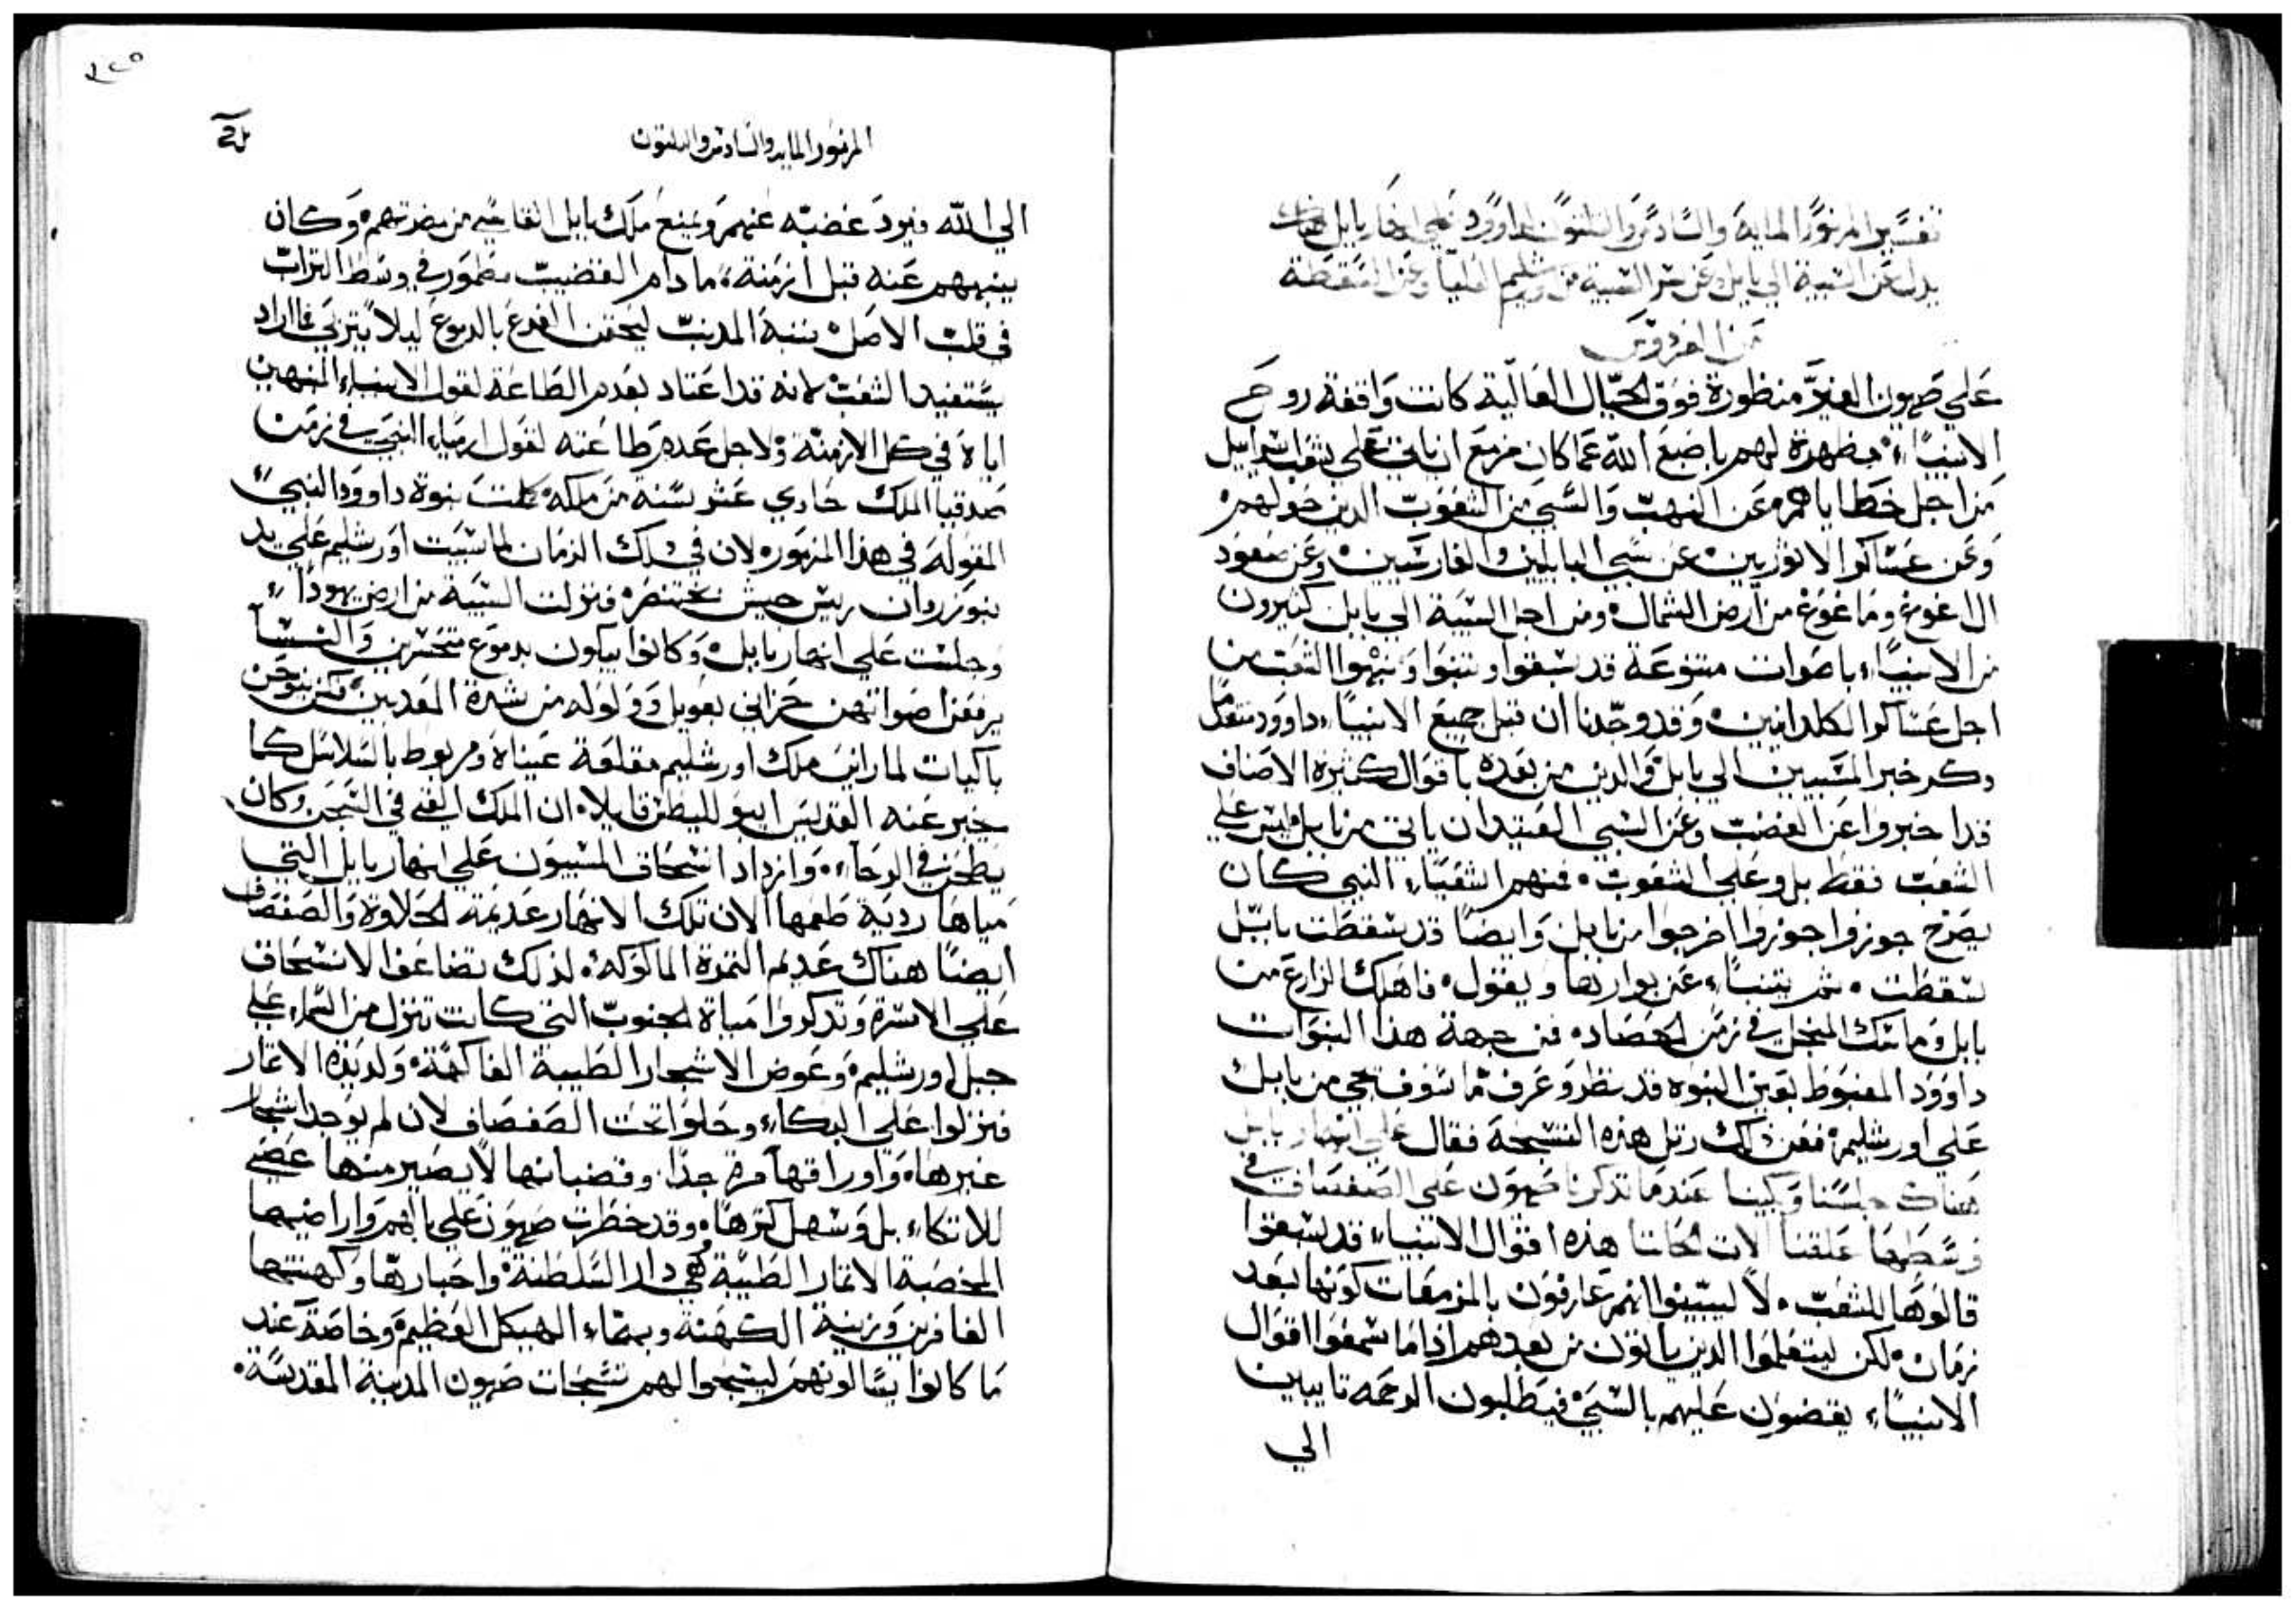 تفسير المزمور المايه والسادس والثلثون لداوود علي انهار بابل هناك
يدل عن السبية الي بابل وعن سر السبية من اورشليم العليا وعن السقطة
من الفردوس
علي صهيون العليه منظورة فوق الجبال العالية كانت واقفة روح
الانبياء، مظهرة لهم باصبع الله عما كان مزمع ان ياتي علي شعب اسراييل
من اجل خطاياهم وعن النهب والسبي من الشعوب الذين حولهم
وعن عساكر الاثوريين عن سبي البابليين والفارسيين وعن صعود
ال اغوغ وماغوغ من ارض الشمال ومن اجل السبية الي بابل كثيرون
من الانبياء باصوات متنوعة قد سبقوا وتنبوا ونبهوا الشعب من
اجل عساكر الكلدانيين وقد وجدنا ان قبل جميع الانبياء داوود متقدمًا
وكر خبر المسبيين الي بابل والذين من بعده باقوال كثيرة الاصناف
قد اخبروا عن الغضب وعن السبي العتيد ان ياتي من بابل ليس علي
الشعب فقط بل وعلي الشعوب فمنهم اشعياء النبي كان
يصرخ جوزوا جوزوا اخرجوا من بابل وايضًا قد سقطت بابل
سقطت ثم يتنبأ عن بوارها ويقول فاهلك الزارع من
بابل وماسك المنجل في زمن الحصاد فمن جهة هذا النبوات
داوود المغبوط بعين النبوه قد نظر وعرف ما سوف تجي من بابل
علي اورشليم فعن ذلك رتل هذه التسبحة فقال علي انهار بابل
هناك جلسنا وبكينا عندما تذكرنا صهيون علي الصفصاف في
وسطها علقنا الات الحاننا هذه اقوال الانبياء قد سبقوا
قالوها للشعب لا ليبينوا انهم عارفون بالمزمعات كونها بعد
زمان لكن ليتعلموا الذين ياتون من بعدهم اذا ما سمعوا اقوال
الانبياء يقضون عليهم بالسبي فيطلبون الرحمه تايبين
الي
المزمور المايه والسادس والثلثون
الي الله فيرد غضبه عنهم ويمنع ملك بابل القاسي من مضرتهم وكان
ينبههم عنه قبل ازمنة ما دام القضيب مطمور في وسط التراب
في قلب الاصل بنبه المذنب ليحقن الفرع بالدموع ليلا يتربي فما اراد
يستفيد الشعب لانه قد اعتاد بعدم الطاعة لقول الانبياء المنبهين
اياه في كل الازمنة ولاجل عدم طاعته لقول ارمياء النبي في زمن
صدقيا الملك حادي عشر سنة من ملكه كملت نبوة داوود النبي
المقوله في هذا المزمور لان في ذلك الزمان لما سبيت اورشليم علي يد
نبوزردان ريس جيش بختنصر فنزلت السبية من ارض يهودا
وجلست علي انهار بابل وكانوا يبكون بدموع متحسرين والنساء
يرفعن اصواتهن حزاني بعويل وولوله من شدة المعدبين وكن ينوحن
باكيات لما راين ملك اورشليم مقلعة عيناه ومربوط بالسلاسل كما
يخبر عنه القديس ايبوللیطن قايلا ان الملك القي في السجن وكان
يطحن في الرحاء وازداد انسحاق المسبيون علي انهار بابل التي
مياها ردية طعمها الان تلك الانهار عديمة الحلاوة والصفصاف
ايضًا هناك عديم الثمرة الماكوله لذلك تضاعف الانسحاق
علي الاسرة وتذكروا مياة الجنوب التي كانت تنزل من السماء علي
جبل اورشليم وعوض الاشجار الطيبة الفاكهة ولذيذة الاثمار
فنزلوا علي البكاء وحلوا تحت الصفصاف لان لم يوجد اشجار
غيرها واوراقها مرة جدا وقضبانها لا يصير منها عصي
للاتكاء بل وسهل كسرها وقد خطرت صهيون علي بالهم واراضيها
المخصبة الاثمار الطيبة هي دار السلطنة واحبارها وكهنتها
الغافرين وزينة الكهنة وبهاء الهيكل العظيم وخاصة عند
ما كانوا يسالونهم ليسبحوا لهم تسبحات صهيون المدينة المقدسة